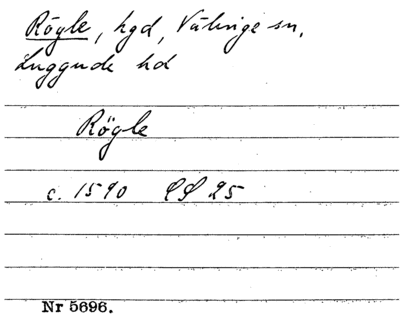 Rögle, hgd, Välinge sn,
Luggude hd
Rögle
c. 1590 LS 25
Nr 5696.